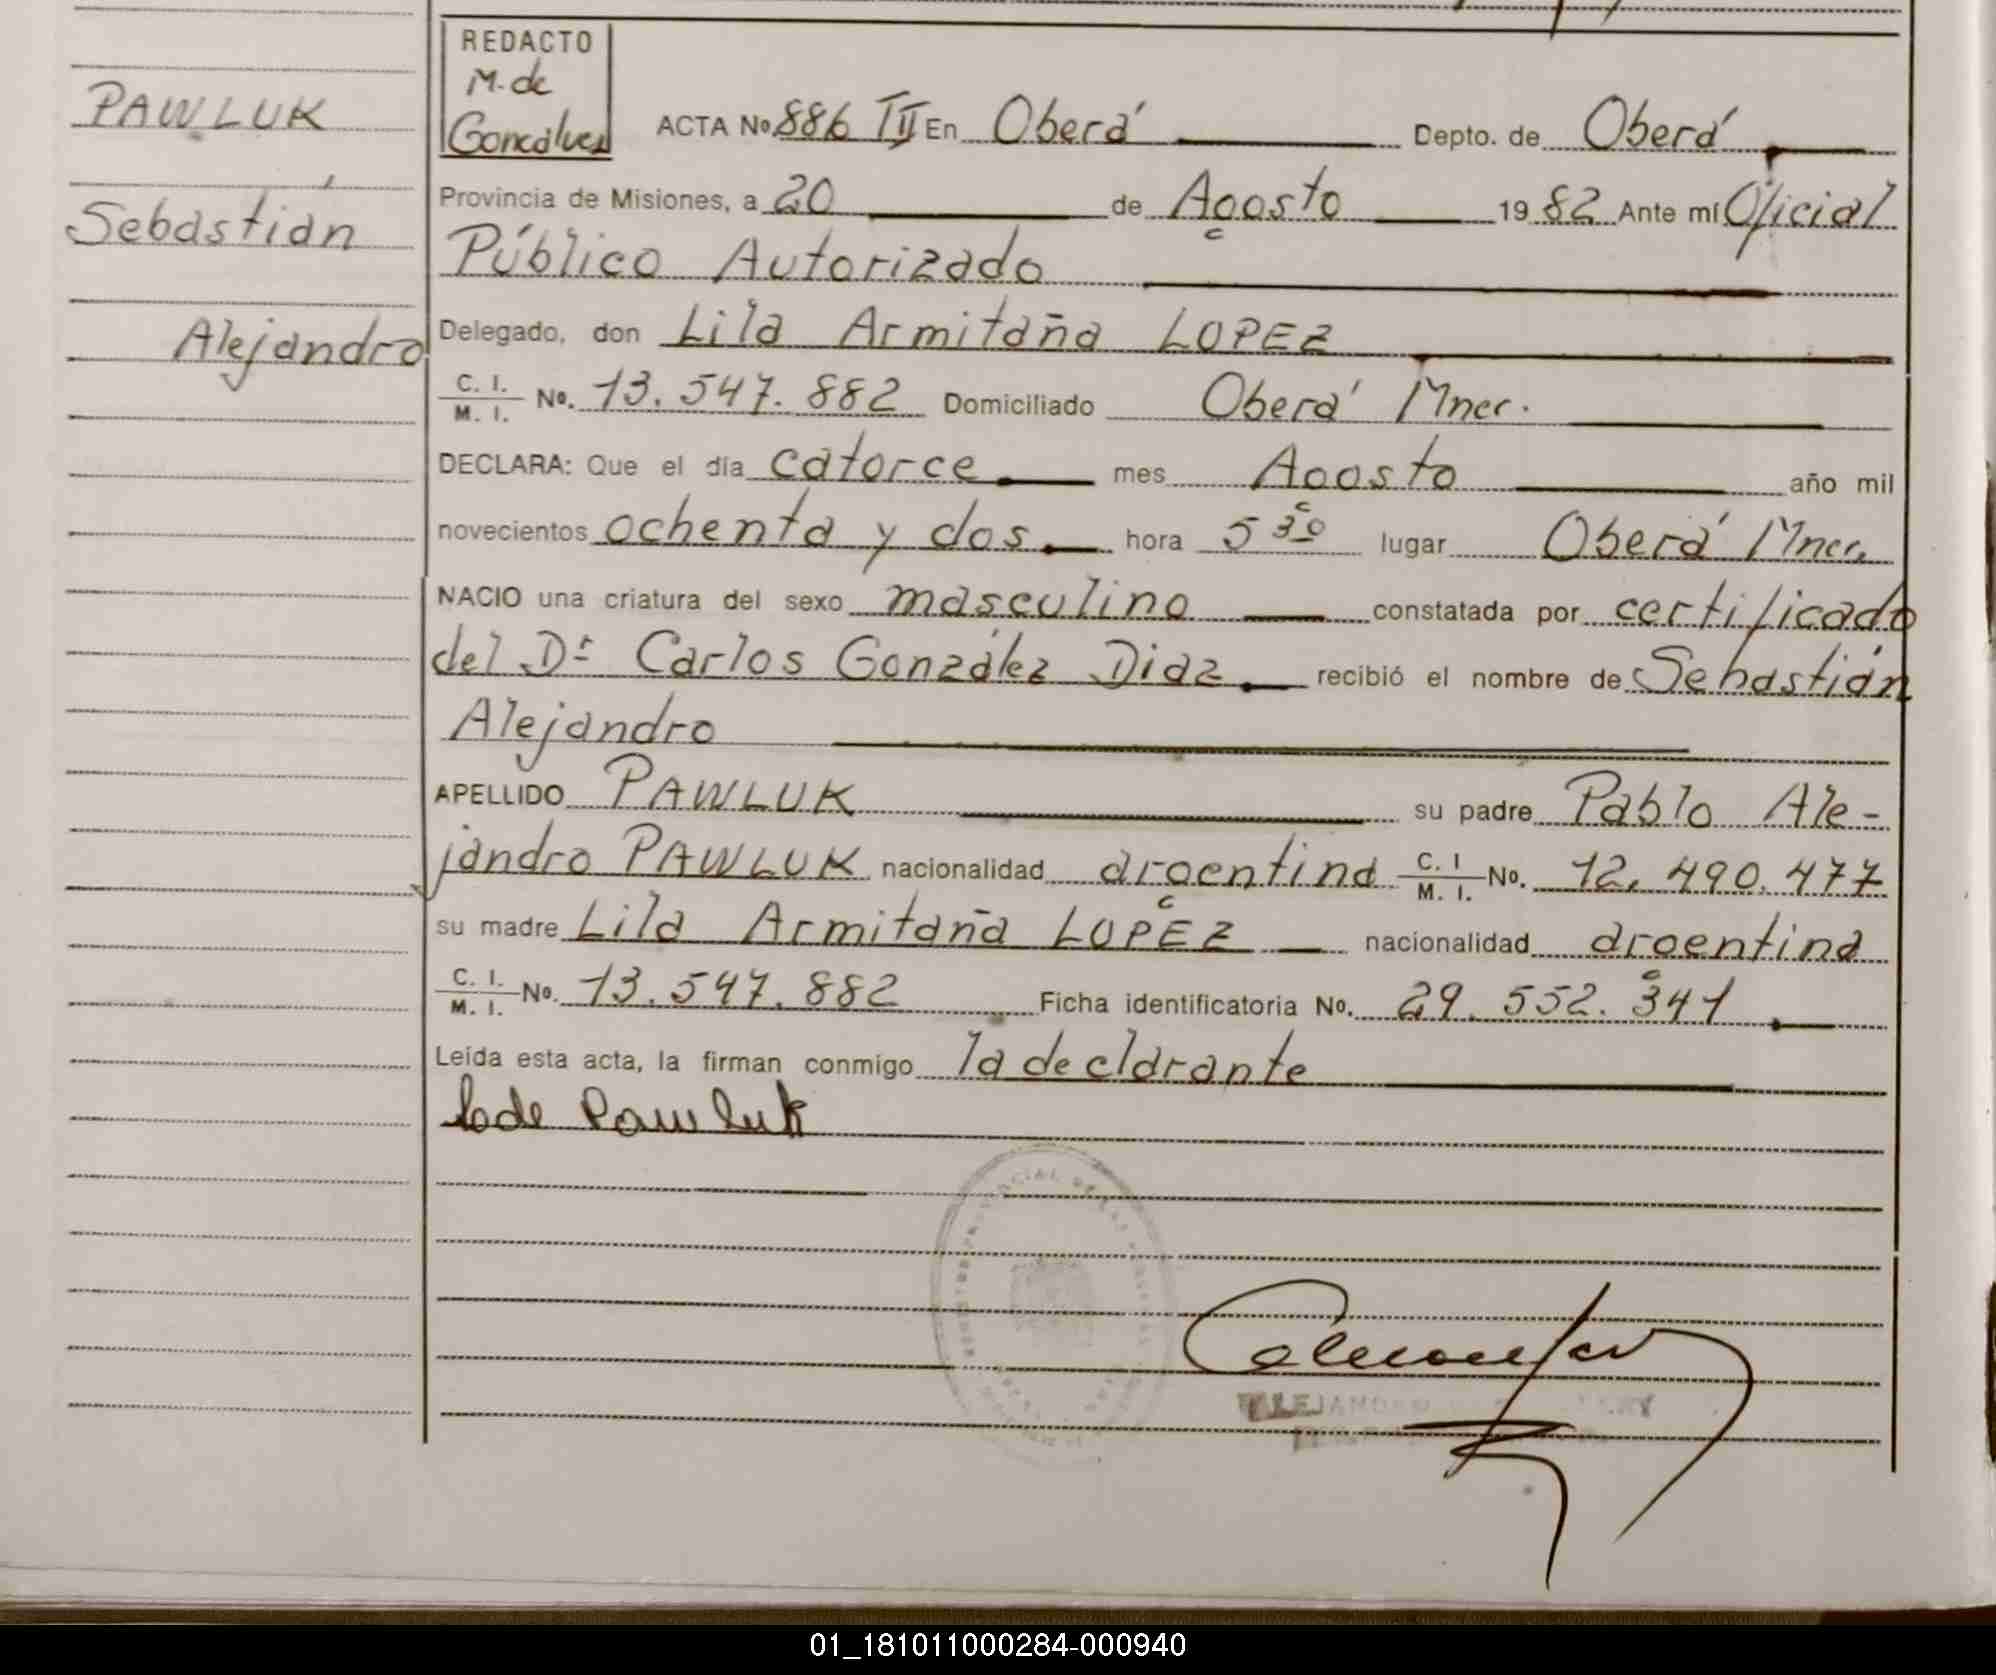 REDACTO
M. de
Goncalves
PAWLUK
Sebastián
Alejandro
ACTA No. 886 TII En Oberá Depto. de Oberá
Provincia de Misiones, a 20 de Agosto 1982 Ante mí Oficial
Público Autorizado
Delegado, don Lila Armitaña LOPEZ
C. I. M. I. No. 13.547.882 Domiciliado Oberá Mnes.
DECLARA: Que el día catorce mes Agosto año mil
novecientos ochenta y dos hora 5 30 lugar Oberá Mnes.
NACIO una criatura del sexo masculino constatada por certificado
del Dr Carlos González Diaz recibió el nombre de Sebastián
Alejandro
APELLIDO PAWLUK su padre Pablo Ale-
jandro PAWLUK nacionalidad argentina C. I M. I. No. 12.490.477
su madre Lila Armitaña LOPEZ nacionalidad argentina
C. I. M. I. No. 13.547.882 Ficha identificatoria No. 29.552.341
Leída esta acta, la firman conmigo la declarante
de Pawluk
ALEJANDRO
01_181011000284-000940